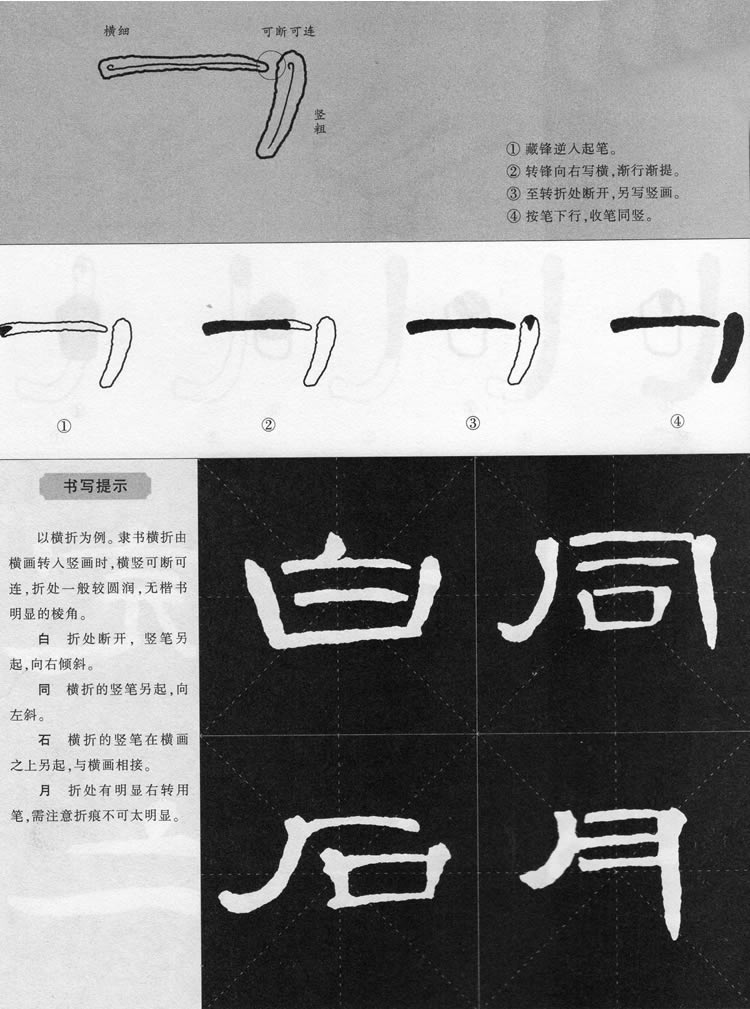 横细
可断可连
竖粗
① 藏锋逆入起笔。
② 转锋向右写横,渐行渐提。
③ 至转折处断开,另写竖画。
④ 按笔下行,收笔同竖。
①
②
③
④
书写提示
以横折为例。隶书横折由
横画转入竖画时,横竖可断可
连,折处一般较圆润,无楷书
明显的棱角。
白 折处断开,竖笔另
起,向右倾斜。
同 横折的竖笔另起,向
左斜。
石 横折的竖笔在横画
之上另起,与横画相接。
月 折处有明显右转用
笔,需注意折痕不可太明显。
白 同
石 月